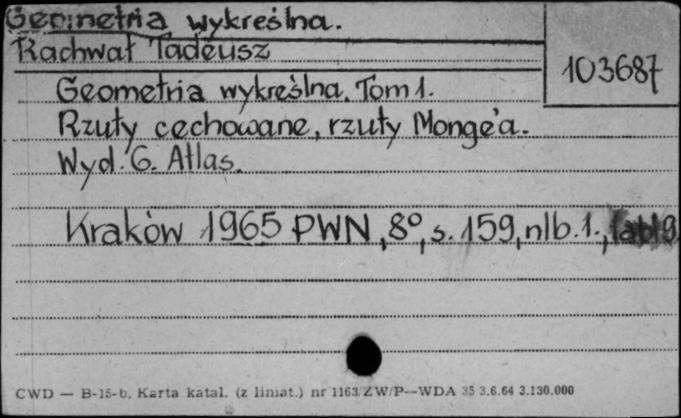 Geometria wykreślna.
Rachwał Tadeusz
103687
Geometria wykreślna. Tom 1.
Rzuty cechowane, rzuty Monge'a.
Wyd. 6. Atlas.
Kraków 1965 PWN, 8°, s. 159, nlb. 1.,
CWD — B-15-b. Karta katal. (z liniat.) nr 1163/ZW/P—WDA 35 3.6.64 3.130.000